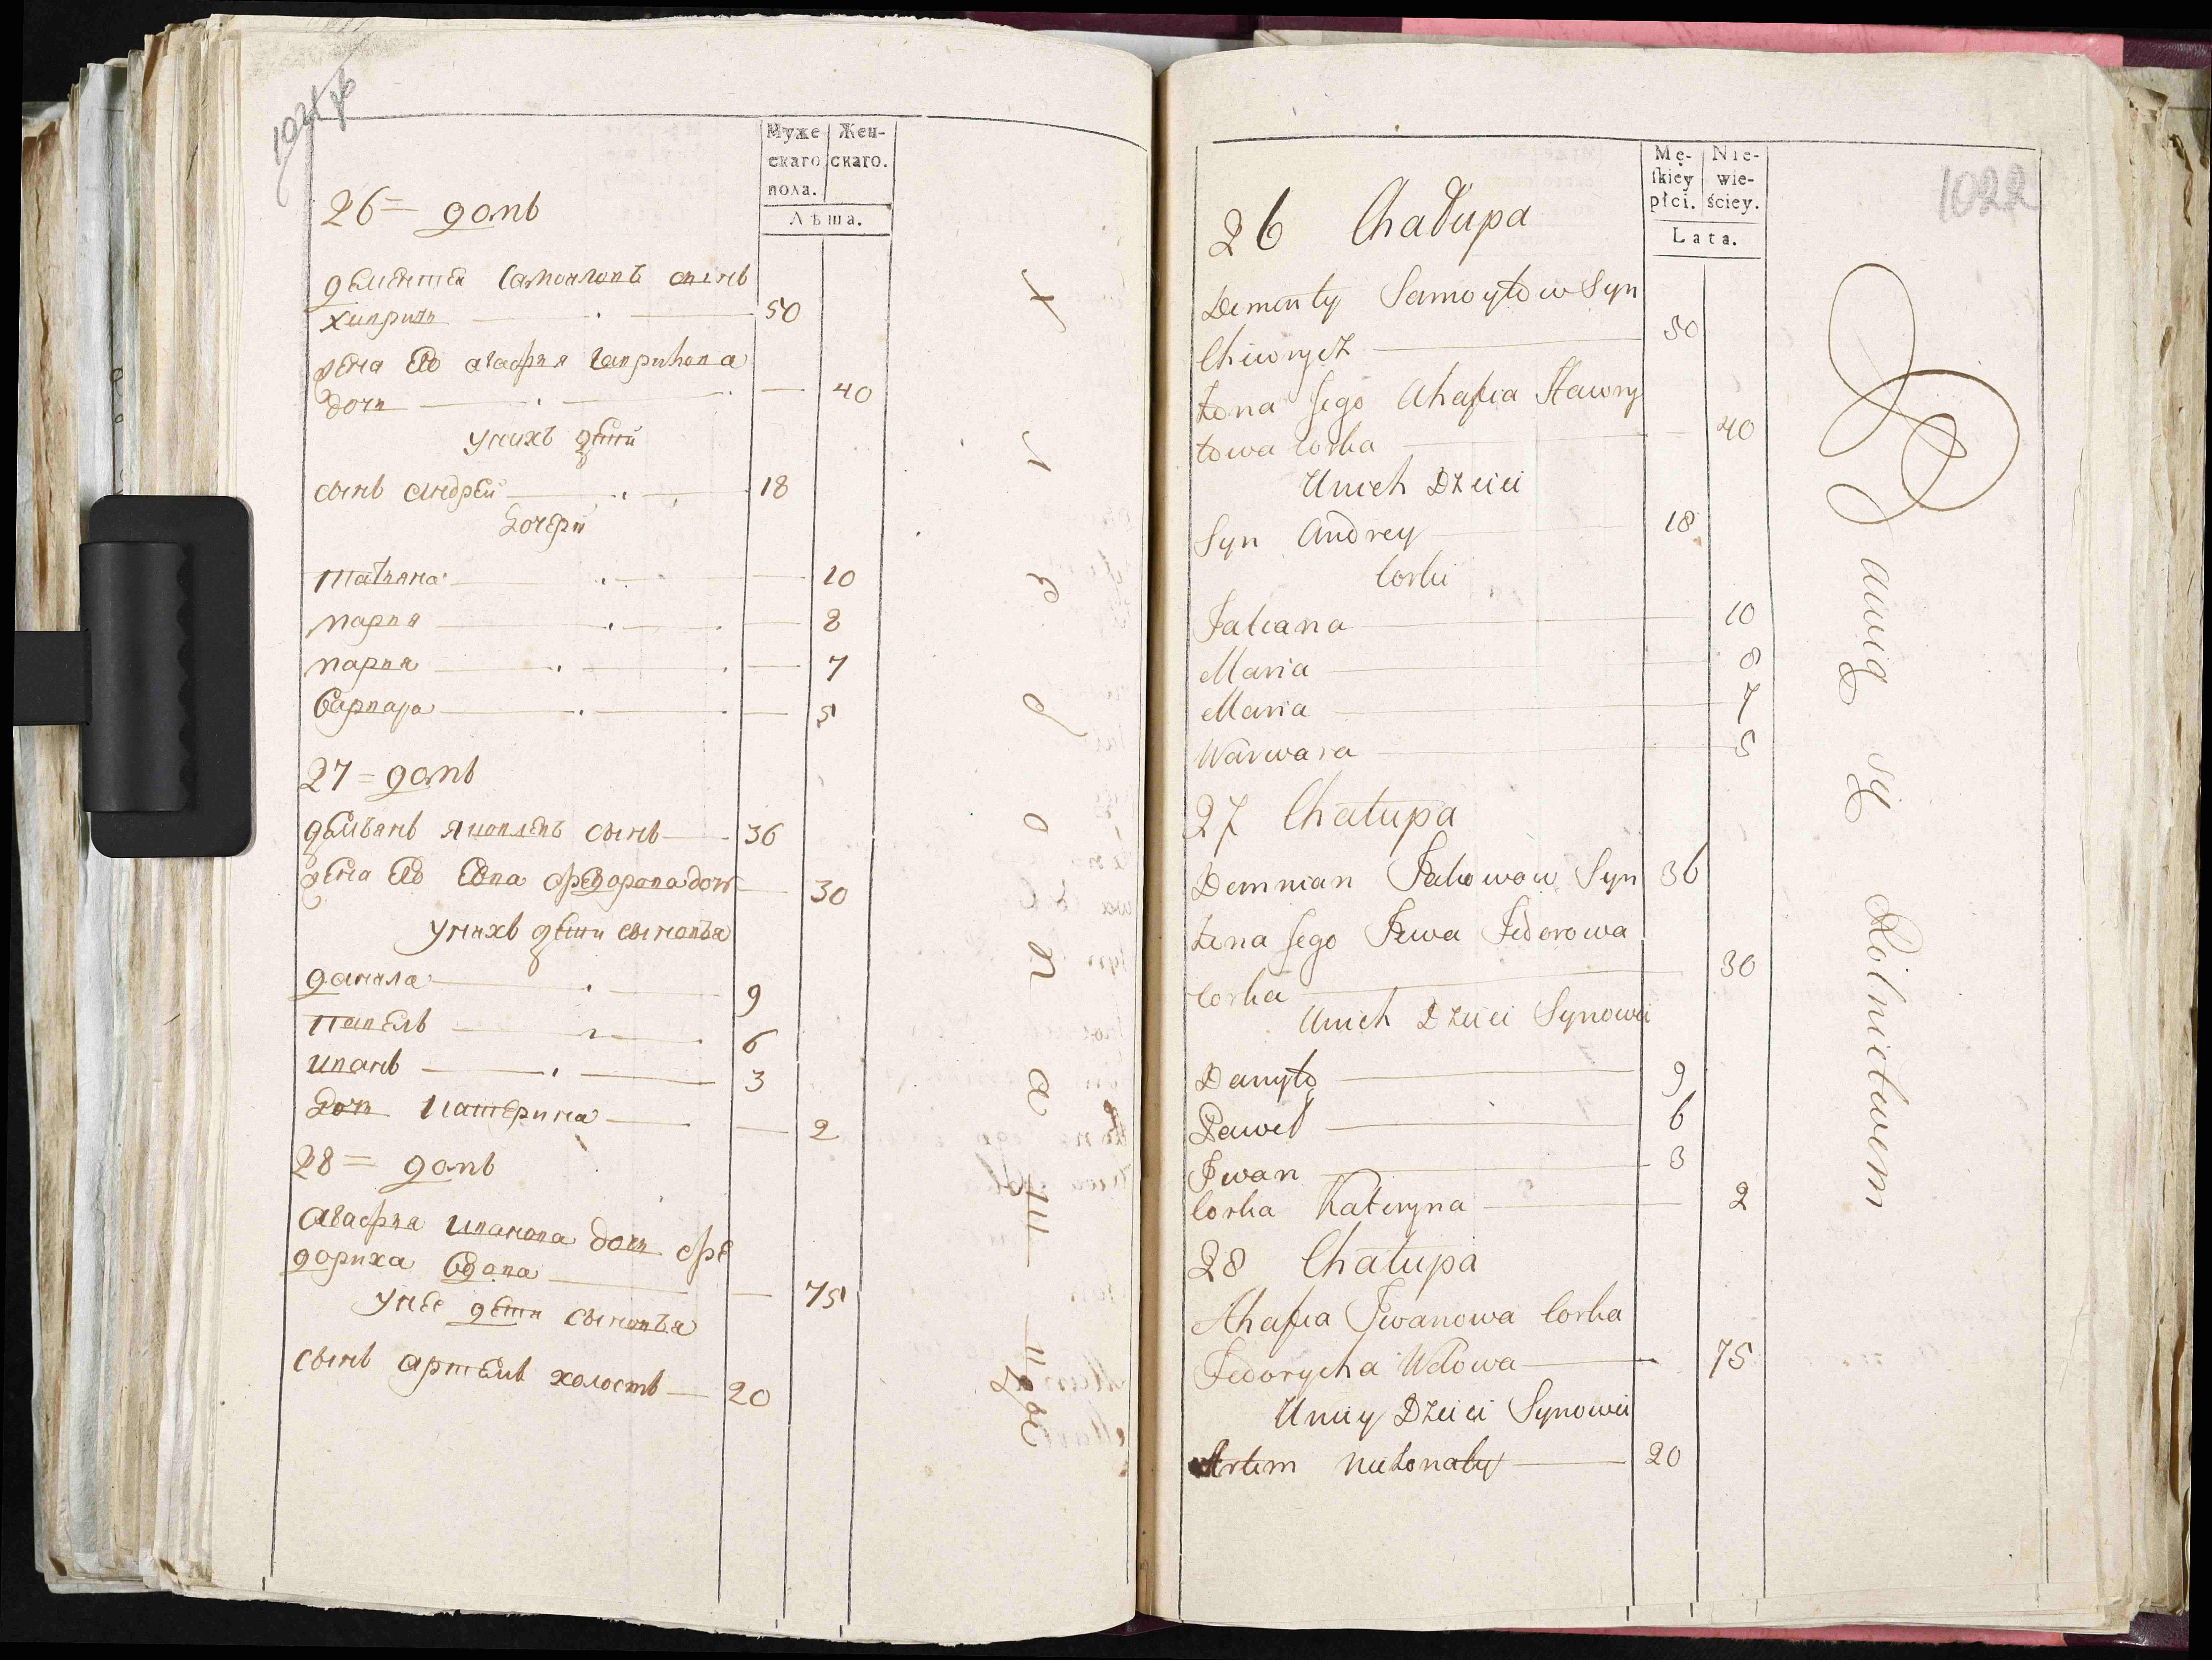 Муже
скаго
пола.
Жен-
скаго.
Лѣта.
26 = домъ
дементеи Самоиловъ сынъ
хивричъ — 50
жена Его агафия Гавpилова
дочь — 40
У нихъ дети
сынъ андреи — 18
дочери
татьяна — 10
мария — 8
мария — 7
варвара — 5
27 = домъ
демьянъ яковлевъ сынъ — 36
жена Его Евва федорова дочь — 30
У нихъ дети сыновья
данила — 9
павелъ — 6
иванъ — 3
дочь катерина — 2
28 = домъ
агафия иванова дочь фе
дориха вдова — 75
У нее дети сыновья
сынъ артемъ холостъ — 20
1022
Mę-
ſkiey
płci.
Nie-
wie-
ściey.
Lata.
26 Chałupa
Dementy Samoyłow Syn
Chiwrycz — 50
Żona Jego Ahafia Hawry
łowa Corka — 40
U nich Dzieci
Syn Andrey — 18
Corki
Tatiana — 10
Maria — 8
Maria — 7
Warwara — 5
27 Chałupa
Demnian Jakowow Syn 36
Żena Jego Jewa Fedorowa
Corka — 30
U nich Dzieci Synowie
Danyło — 9
Paweł — 6
Iwan — 3
Corka Kateryna — 2
28 Chałupa
Ahafia Iwanowa Corka
Fedorycha Wdowa — 75
U niey Dzieci Synowie
Artem nieżonaty — 20
Rolnictwem